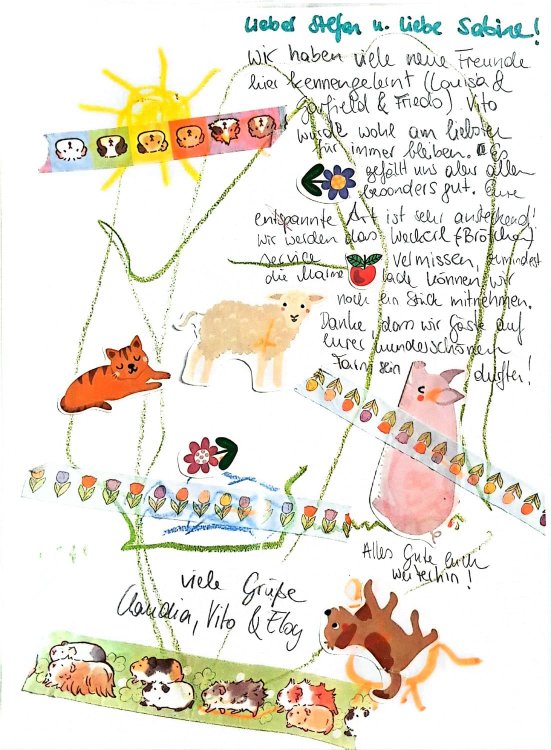 Lieber Stefan u. liebe Sabine!
Wir haben viele neue Freunde
hier kennengelernt (Louisa &
Garfield & Friedo) Vito
würde wohl am liebsten
für immer bleiben. Es
gefällt uns aber allen
besonders gut. Eure
entspannte Art ist sehr ansteckend!
Wir werden das Weckerl-(Brötchen)
service vermissen, zumindest
die Marme lade können wir
noch ein Stück mitnehmen.
Danke, dass wir Gäste auf
eurer wunderschönen
Farm sein durften!
Alles Gute Euch
weiterhin!
viele Grüße
Claudia, Vito & Eloy